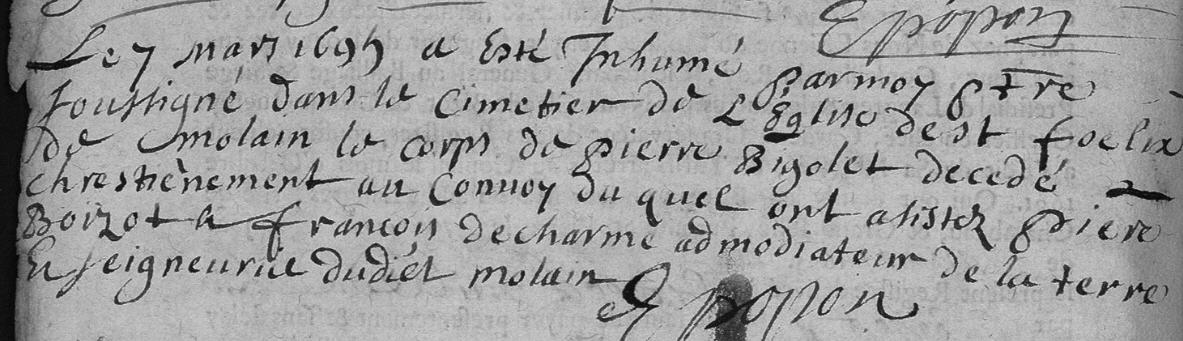 E popon
Le 7 mars 1695 a Esté Inhumé parmoy ptre
soussigné dans le Cimetier de L'Eglise de st foelix
de molain le corps de pierre Bigolet decedé
chrestiènement au Convoy du quel ont assistez pierre
Boizot & françois decharme admodiateur de la terre
& seigneurie dudict molain
E popon